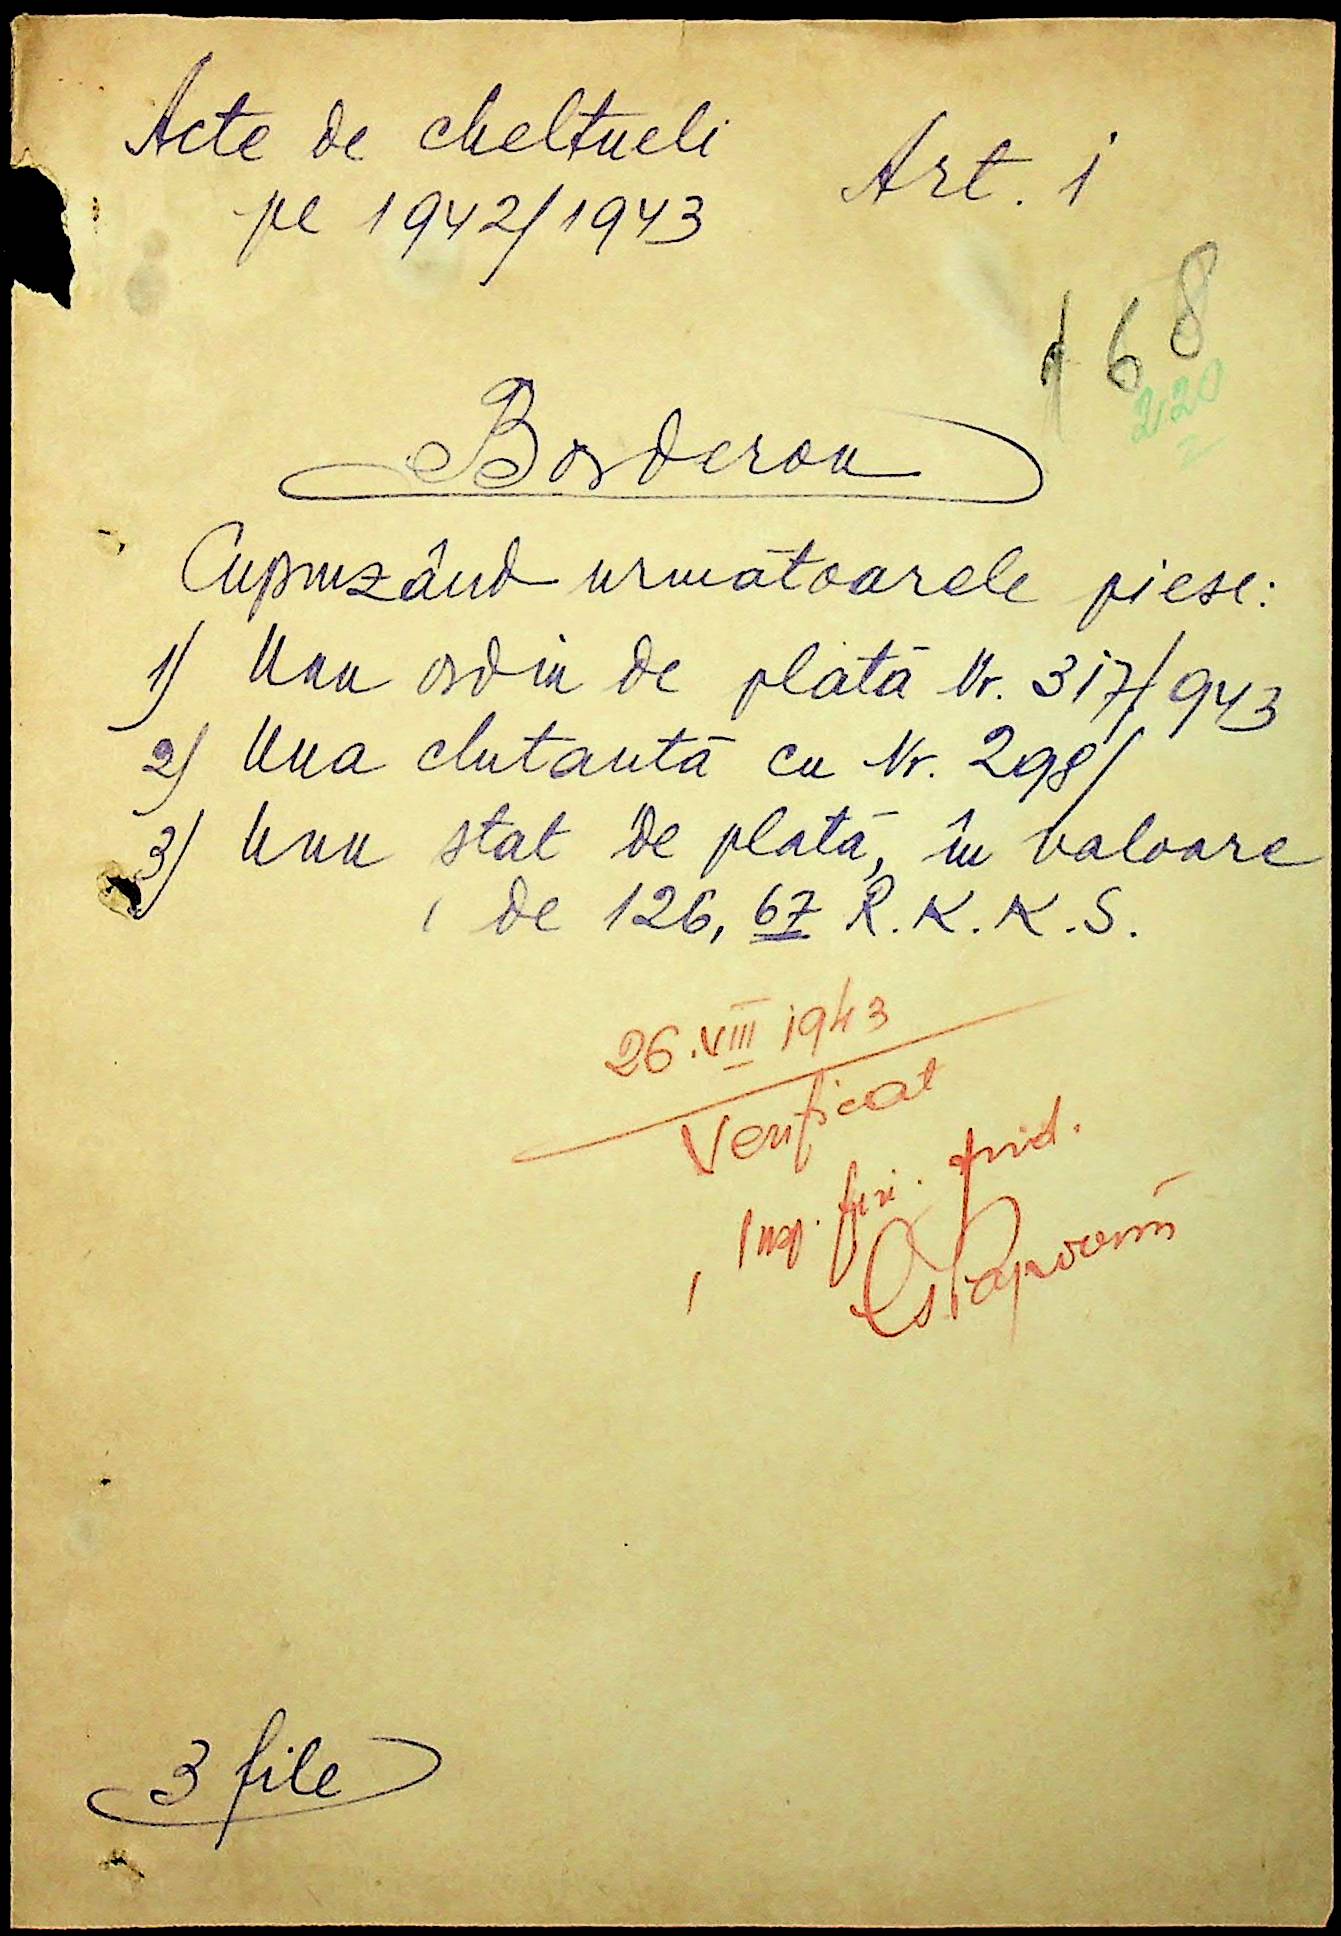 Acte de cheltueli
pe 1942/1943
Art. 1
168
220
Borderou
Cuprinzând următoarele piese:
1) Unu ordin de plată Nr. 317/943
2) Una chitantă cu Nr. 298/
3) Unu stat de plată, în valoare
de 126,67 R.K.K.S.
26.VIII 1943
Verificat
Insp.
3 file